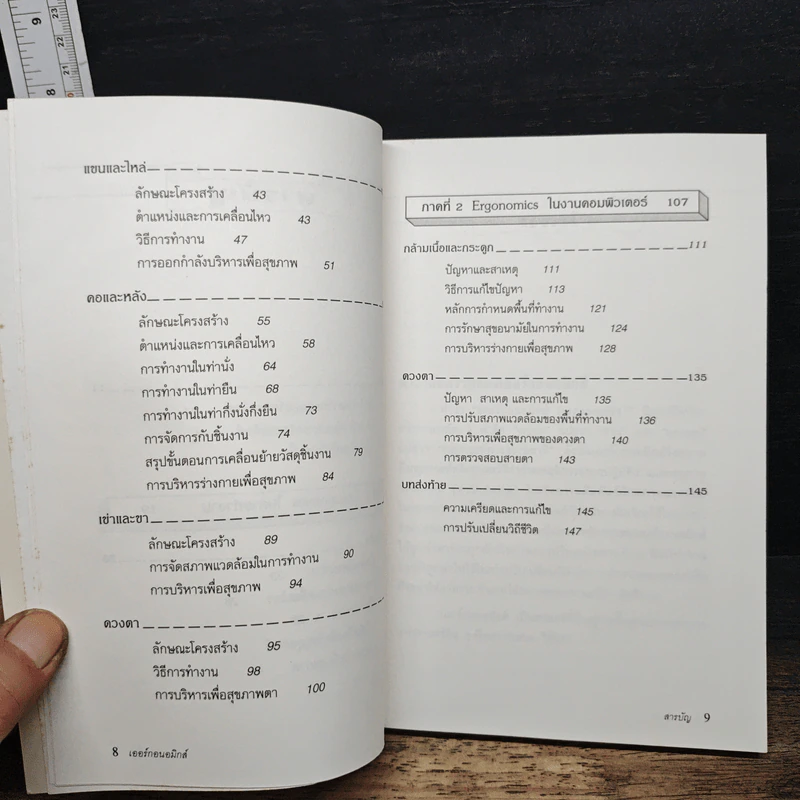 9
23
22
21
8
แขนและไหล่
ลักษณะโครงสร้าง 43
ตำแหน่งและการเคลื่อนไหว 43
วิธีการทำงาน 47
การออกกำลังบริหารเพื่อสุขภาพ 51
คอและหลัง
ลักษณะโครงสร้าง 55
ตำแหน่งและการเคลื่อนไหว 58
การทำงานในท่านั่ง 64
การทำงานในท่ายืน 68
การทำงานในท่ากึ่งนั่งกึ่งยืน 73
การจัดการกับชิ้นงาน 74
สรุปขั้นตอนการเคลื่อนย้ายวัสดุชิ้นงาน 79
การบริหารร่างกายเพื่อสุขภาพ 84
เข่าและขา
ลักษณะโครงสร้าง 89
การจัดสภาพแวดล้อมในการทำงาน 90
การบริหารเพื่อสุขภาพ 94
ดวงตา
ลักษณะโครงสร้าง 95
วิธีการทำงาน 98
การบริหารเพื่อสุขภาพตา 100
8 เออร์กอนอมิกส์
ภาคที่ 2 Ergonomics ในงานคอมพิวเตอร์ 107
กล้ามเนื้อและกระดูก 111
ปัญหาและสาเหตุ 111
วิธีการแก้ไขปัญหา 113
หลักการกำหนดพื้นที่ทำงาน 121
การรักษาสุขอนามัยในการทำงาน 124
การบริหารร่างกายเพื่อสุขภาพ 128
ดวงตา 135
ปัญหา สาเหตุ และการแก้ไข 135
การปรับสภาพแวดล้อมของพื้นที่ทำงาน 136
การบริหารเพื่อสุขภาพของดวงตา 140
การตรวจสอบสายตา 143
บทส่งท้าย 145
ความเครียดและการแก้ไข 145
การปรับเปลี่ยนวิถีชีวิต 147
สารบัญ 9